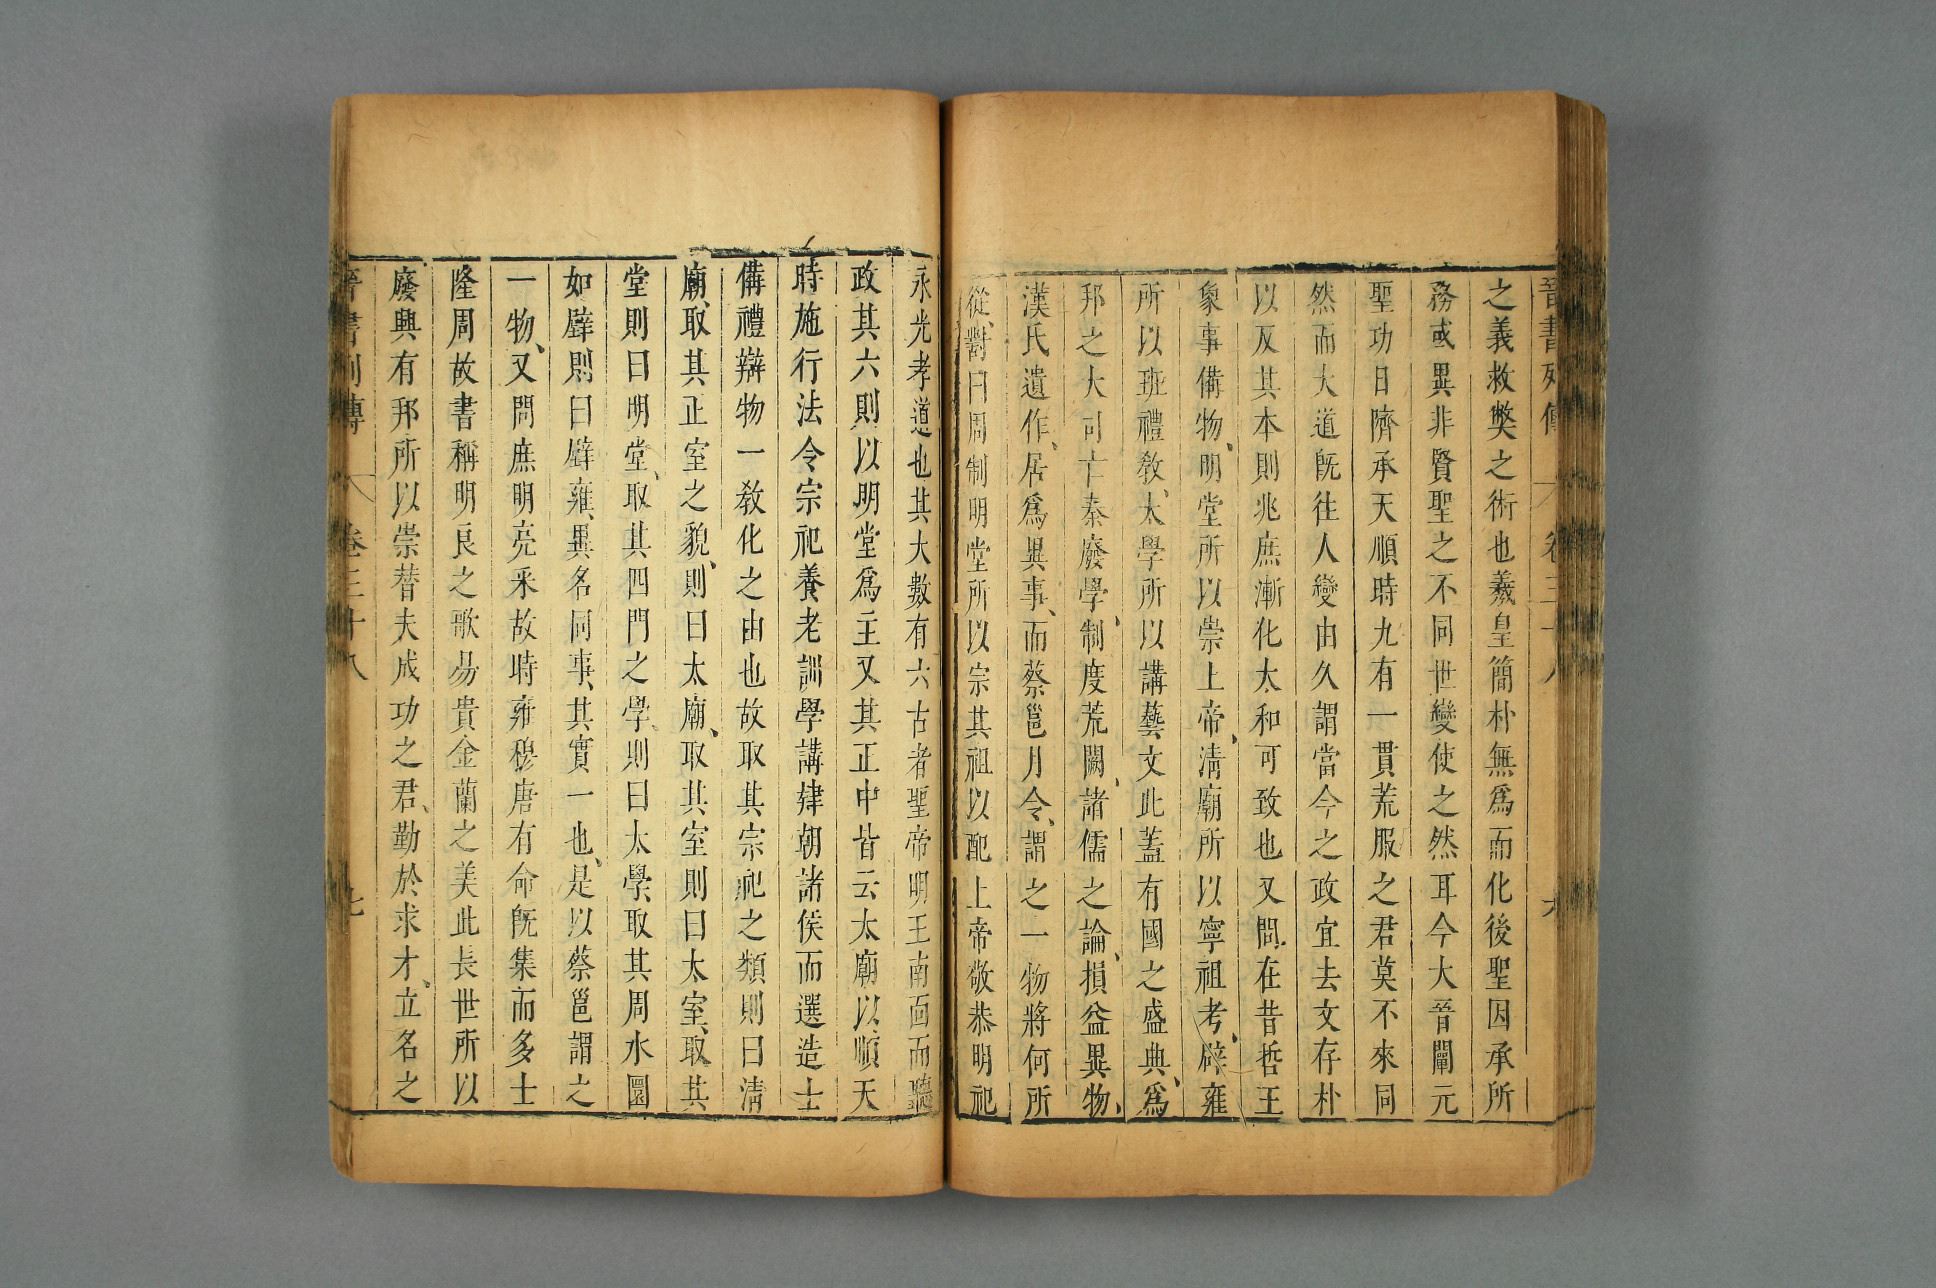 晉書列傳 卷三十八 六
之義救獘之術也羲皇簡朴無爲而化後聖因承所
務或異非賢聖之不同世變使之然耳今大晉闡元
聖功日隮承天順時九有一貫荒服之君莫不來同
然而大道旣往人變由久謂當今之政宜去文存朴
以反其本則兆庶漸化太和可致也又問在昔哲王
象事備物明堂所以崇上帝清廟所以寧祖考辟雍
所以班禮敎太學所以講藝文此蓋有國之盛典爲
邦之大司亡秦廢學制度荒闕諸儒之論損益異物
漢氏遺作居爲異事而蔡邕月令謂之一物將何所
從對曰周制明堂所以宗其祖以配上帝敬恭明祀
永光孝道也其大數有六古者聖帝明王南面而聽
政其六則以明堂爲主又其正中皆云太廟以順天
時施行法令宗祀養老訓學講肄朝諸侯而選造士
備禮辯物一敎化之由也故取其宗祀之類則曰清
廟取其正室之貌則曰太廟取其室則曰太室取其
堂則曰明堂取其四門之學則曰太學取其周水圜
如璧則曰璧雍異名同事其實一也是以蔡邕謂之
一物又問庶明亮采故時雍穆唐有命旣集而多士
隆周故書稱明良之歌易貴金蘭之美此長世所以
廢興有邦所以崇替夫成功之君勤於求才立名之
晉書列傳 卷三十八 七